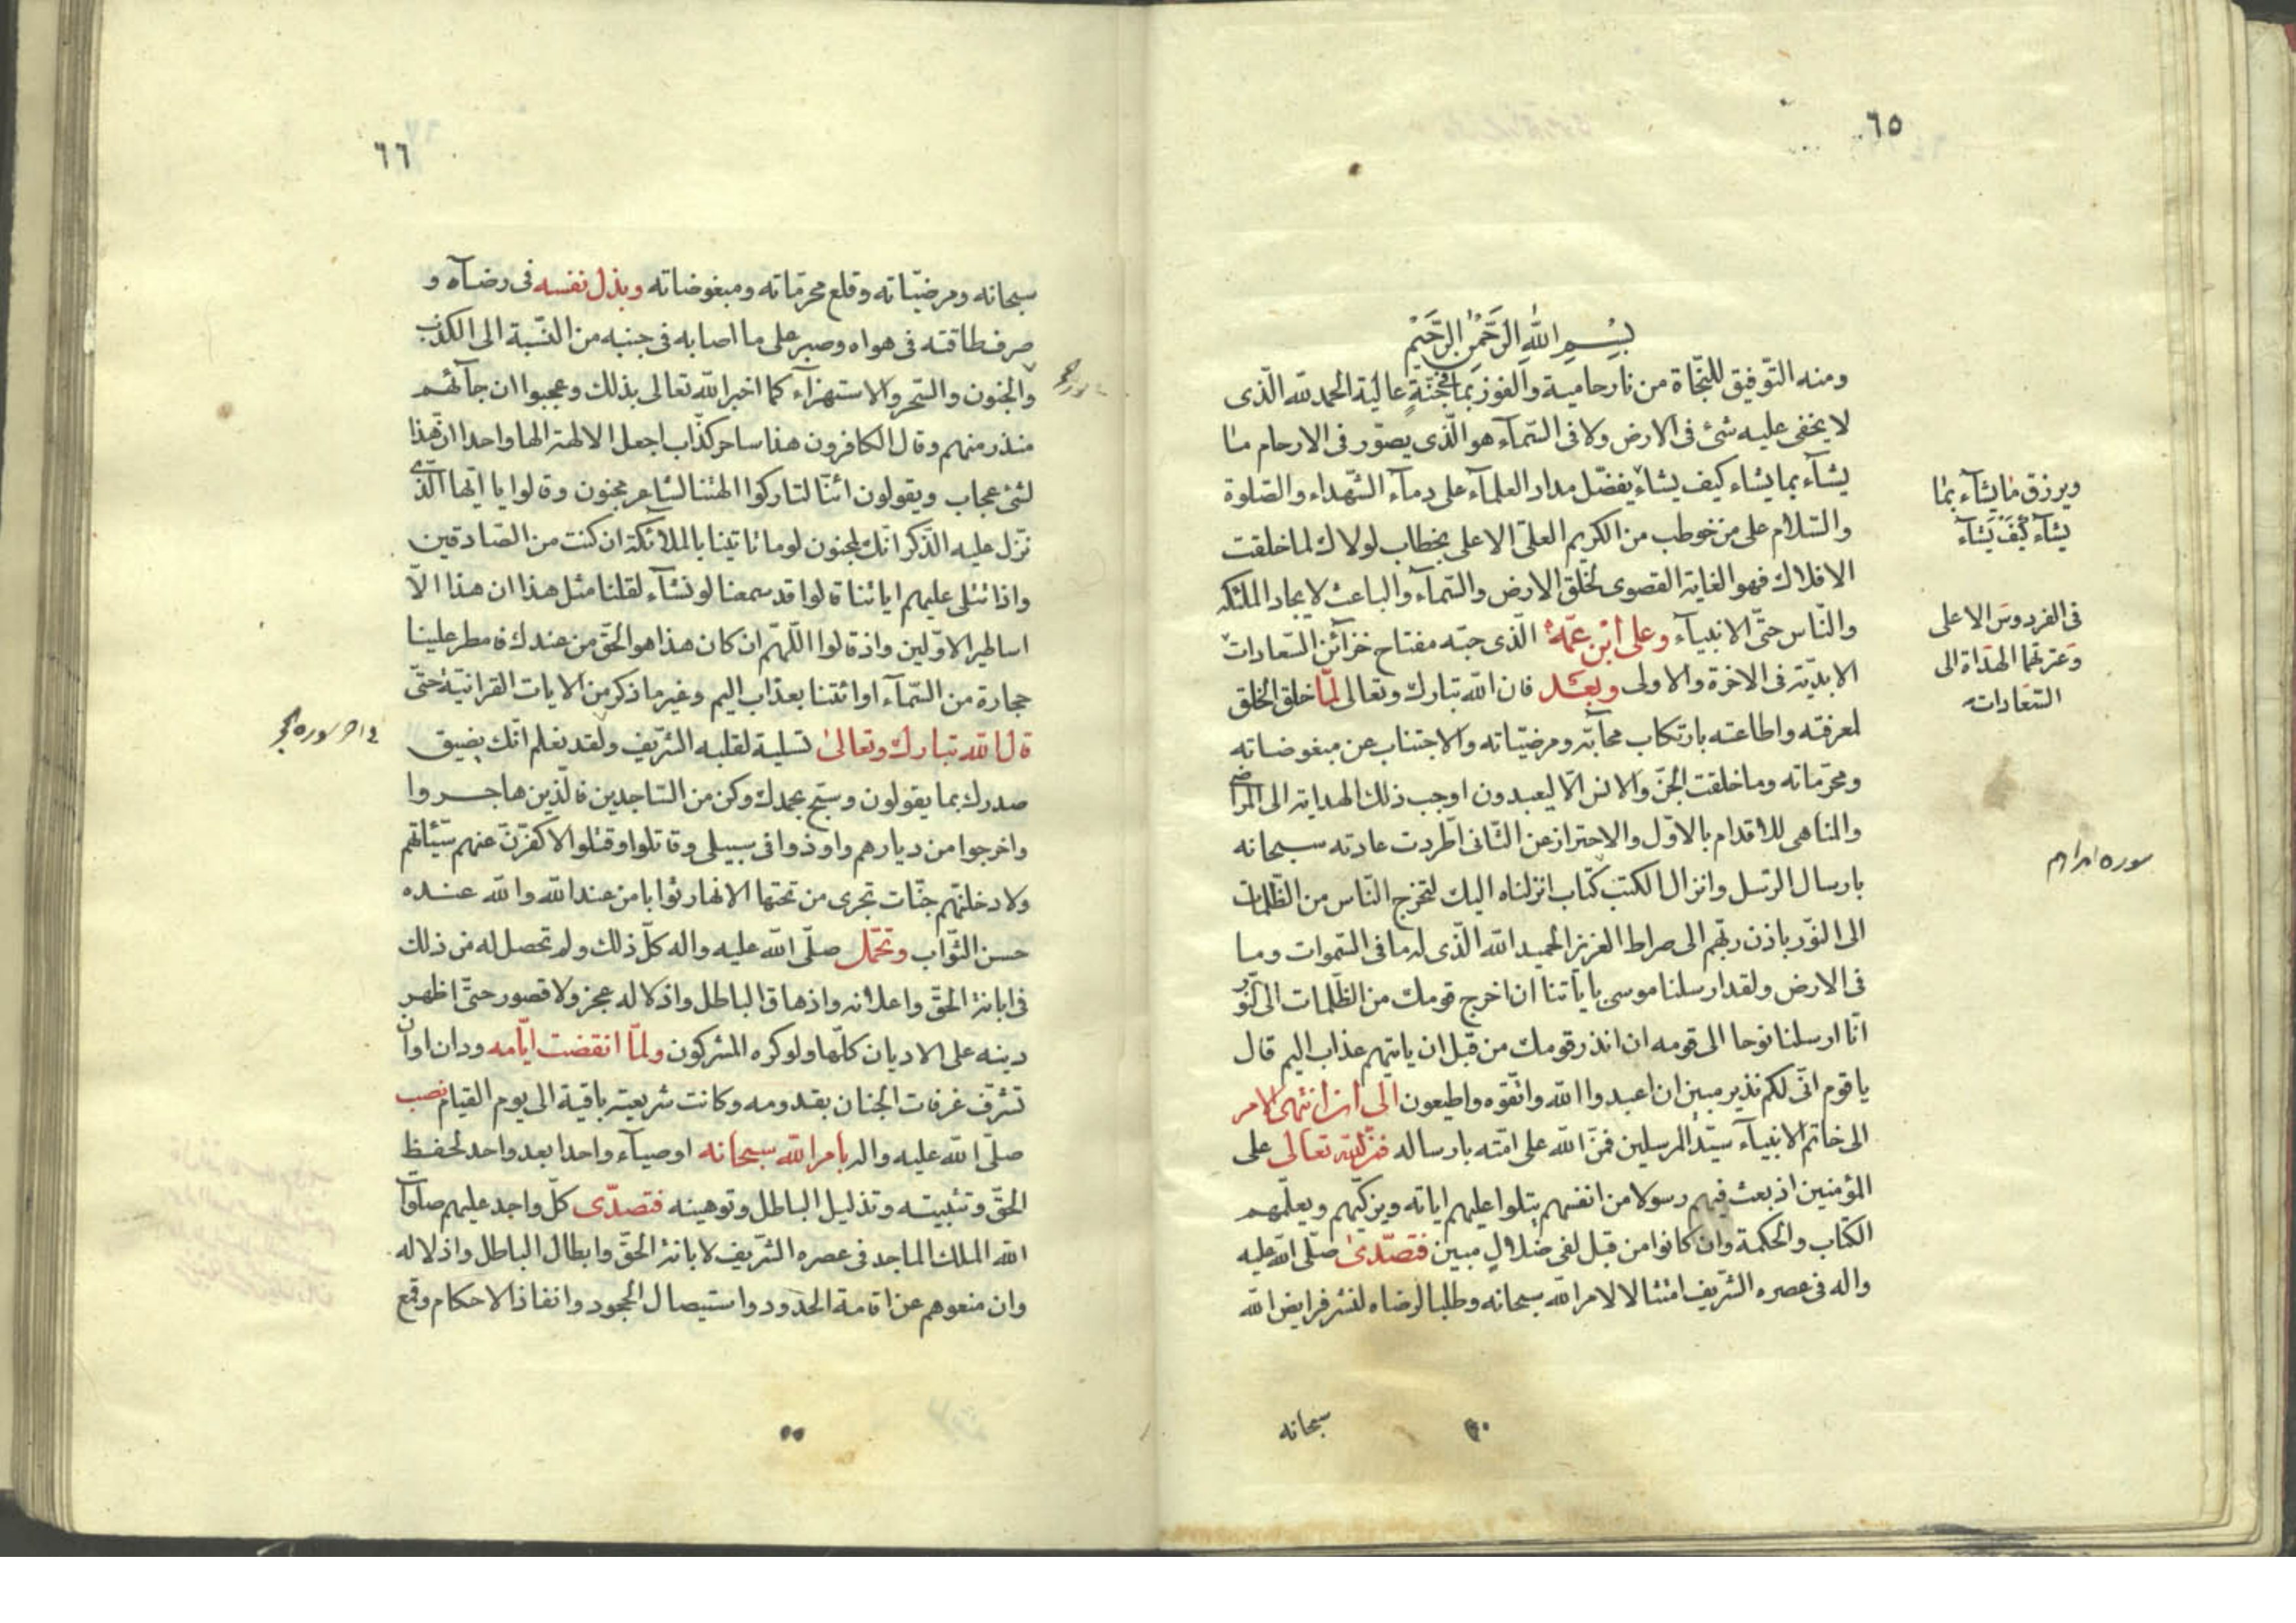 ٦٥
بسم الله الرحمن الرحيم
ومنه التّوفيق للنّجاة من نار حامية والفوز بما فى جنّةٍ عالية الحمد لله الّذى
لا يخفى عليه شئ فى الارض ولا فى السّمآء هو الّذى يصوّر فى الارحام ما
يشآء بما يشاء كيف يشاء يفضّل مداد العلمآء على دمآء الشّهداء والصّلوة
والسّلام على من خوطب من الكريم العلىّ الاعلى بخطاب لولاك لما خلقت
الافلاك فهو الغاية القصوى لخلق الارض والسّمآء والباعث لايجاد الملئكه
والنّاس حتّى الانبيآء وعلى ابن عمّه الّذى حبّه مفتاح خزآئن السّعادات
الابديّة فى الاخرة والاولى وبعد فان الله تبارك وتعالى لمّا خلق الخلق
لمعرفته واطاعته بارتكاب محابّه ومرضيّاته والاجتناب عن مبغوضاته
ومحرّماته وما خلقت الجنّ والانس الّا ليعبدون اوجب ذلك الهداية الى المراضى
والمناهى للاقدام بالاوّل والاحتراز عن الثّانى اطّردت عادته سبحانه
بارسال الرّسل وانزال الكتب كتاب انزلناه اليك لتخرج النّاس من الظّلمات
الى النّور باذن ربّهم الى صراط العزيز الحميد الله الّذى له ما فى السّموات وما
فى الارض ولقد ارسلنا موسى باياتنا ان اخرج قومك من الظّلمات الى النّور
انّا ارسلنا نوحا الى قومه ان انذر قومك من قبل ان ياتيهم عذاب اليم قال
يا قوم انّى لكم نذير مبين ان اعبدوا الله واتّقوه واطيعون الى ان انتهى الامر
الى خاتم الانبيآء سيّد المرسلين فمنّ الله على امّته بارساله فمنّ الله تعالى على
المؤمنين اذ بعث فيهم رسولا من انفسهم يتلوا عليهم اياته ويزكّيهم ويعلّمهم
الكتاب والحكمة وان كانوا من قبل لفى ضلال مبين فتصدّى صلّى الله عليه
واله فى عصره الشّريف امتثالا لامر الله سبحانه وطلبا لرضاه لنشر فرايض الله
سبحانه
ويرزق ما يشآء بما
يشآء كيف يشآء
فى الفردوس الاعلى
وعترتهما الهداة الى
السّعادات
سوره ابراهيم
٦٦
سبحانه ومرضيّاته وقلع محرّماته ومبغوضاته وبذل نفسه فى رضآه و
صرف طاقته فى هواه وصبر على ما اصابه فى جنبه من النّسبة الى الكذب
والجنون والسّحر والاستهزآء كما اخبر الله تعالى بذلك وعجبوا ان جآئهم
منذر منهم وقال الكافرون هذا ساحر كذّاب اجعل الالهة الها واحدا انّ هذا
لشئ عجاب ويقولون ائنّا لتاركوا الهتنا لشاعر مجنون وقالوا يا ايّها الّذى
نزّل عليه الذّكر انّك لمجنون لوما تاتينا بالملآئكة ان كنت من الصّادقين
واذا تتلى عليهم اياتنا قالوا قد سمعنا لو نشآء لقلنا مثل هذا ان هذا الّا
اساطير الاوّلين واذ قالوا اللّهمّ ان كان هذا هو الحقّ من عندك فامطر علينا
حجارة من السّمآء او ائتنا بعذاب اليم وغير ما ذكر من الايات القرانيّة حتّى
قال الله تبارك وتعالى تسلية لقلبه الشّريف ولقد نعلم انّك يضيق
صدرك بما يقولون وسبّح بحمدك وكن من السّاجدين فالّذين هاجروا
واخرجوا من ديارهم واوذوا فى سبيلى وقاتلوا وقتلوا لاكفّرنّ عنهم سيّئاتهم
ولادخلنّهم جنّات تجرى من تحتها الانهار ثوابا من عند الله والله عنده
حسن الثّواب وتحمّل صلّى الله عليه واله كلّ ذلك ولم تحصل له من ذلك
فى ابانة الحقّ واعلانه واذهاق الباطل واذلاله عجز ولا قصور حتّى اظهر
دينه على الاديان كلّها ولو كره المشركون ولمّا انقضت ايّامه ودان اوان
تشرّف غرفات الجنان بقدومه وكانت شريعته باقية الى يوم القيام نصب
صلّى الله عليه واله بامر الله سبحانه اوصيآء واحدا بعد واحد لحفظ
الحقّ وتثبيته وتذليل الباطل وتوهينه فتصدّى كلّ واحد عليهم صلوات
الله الملك الماجد فى عصره الشّريف لابانة الحقّ وابطال الباطل واذلاله
وان منعوهم عن اقامة الحدود واستيصال الجحود وانفاذ الاحكام وقمع
فى اخر سوره حجر